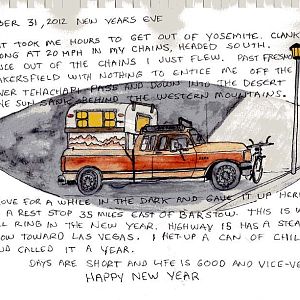 BER 31, 2012 NEW YEARS EVE
T TOOK ME HOURS TO GET OUT OF YOSEMITE. CLANK
ONG AT 20 MPH IN MY CHAINS, HEADED SOUTH.
CE OUT OF THE CHAINS I JUST FLEW. PAST FRESNO
AKERSFIELD WITH NOTHING TO ENTICE ME OFF THE
VER TEHACHAPI PASS AND DOWN INTO THE DESERT
THE SUN SANK BEHIND THE WESTERN MOUNTAINS.
OVE FOR A WHILE IN THE DARK AND GAVE IT UP HER
A REST STOP 35 MILES EAST OF BARSTOW. THIS IS W
LL RING IN THE NEW YEAR. HIGHWAY 15 HAS A STEA
OW TOWARD LAS VEGAS. I HET UP A CAN OF CHIL
ND CALLED IT A YEAR.
DAYS ARE SHORT AND LIFE IS GOOD AND VICE-VE
HAPPY NEW YEAR